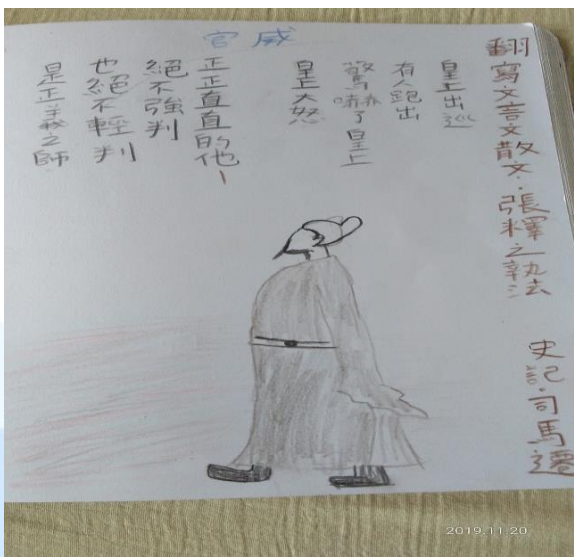 翻寫文言文散文.張釋之執法
史記.司馬遷
官威
皇上出巡
有人跑出
驚嚇了皇上
皇上大怒
正正直直的他，
絕不強判
也絕不輕判
是正義之師
2019.11.20